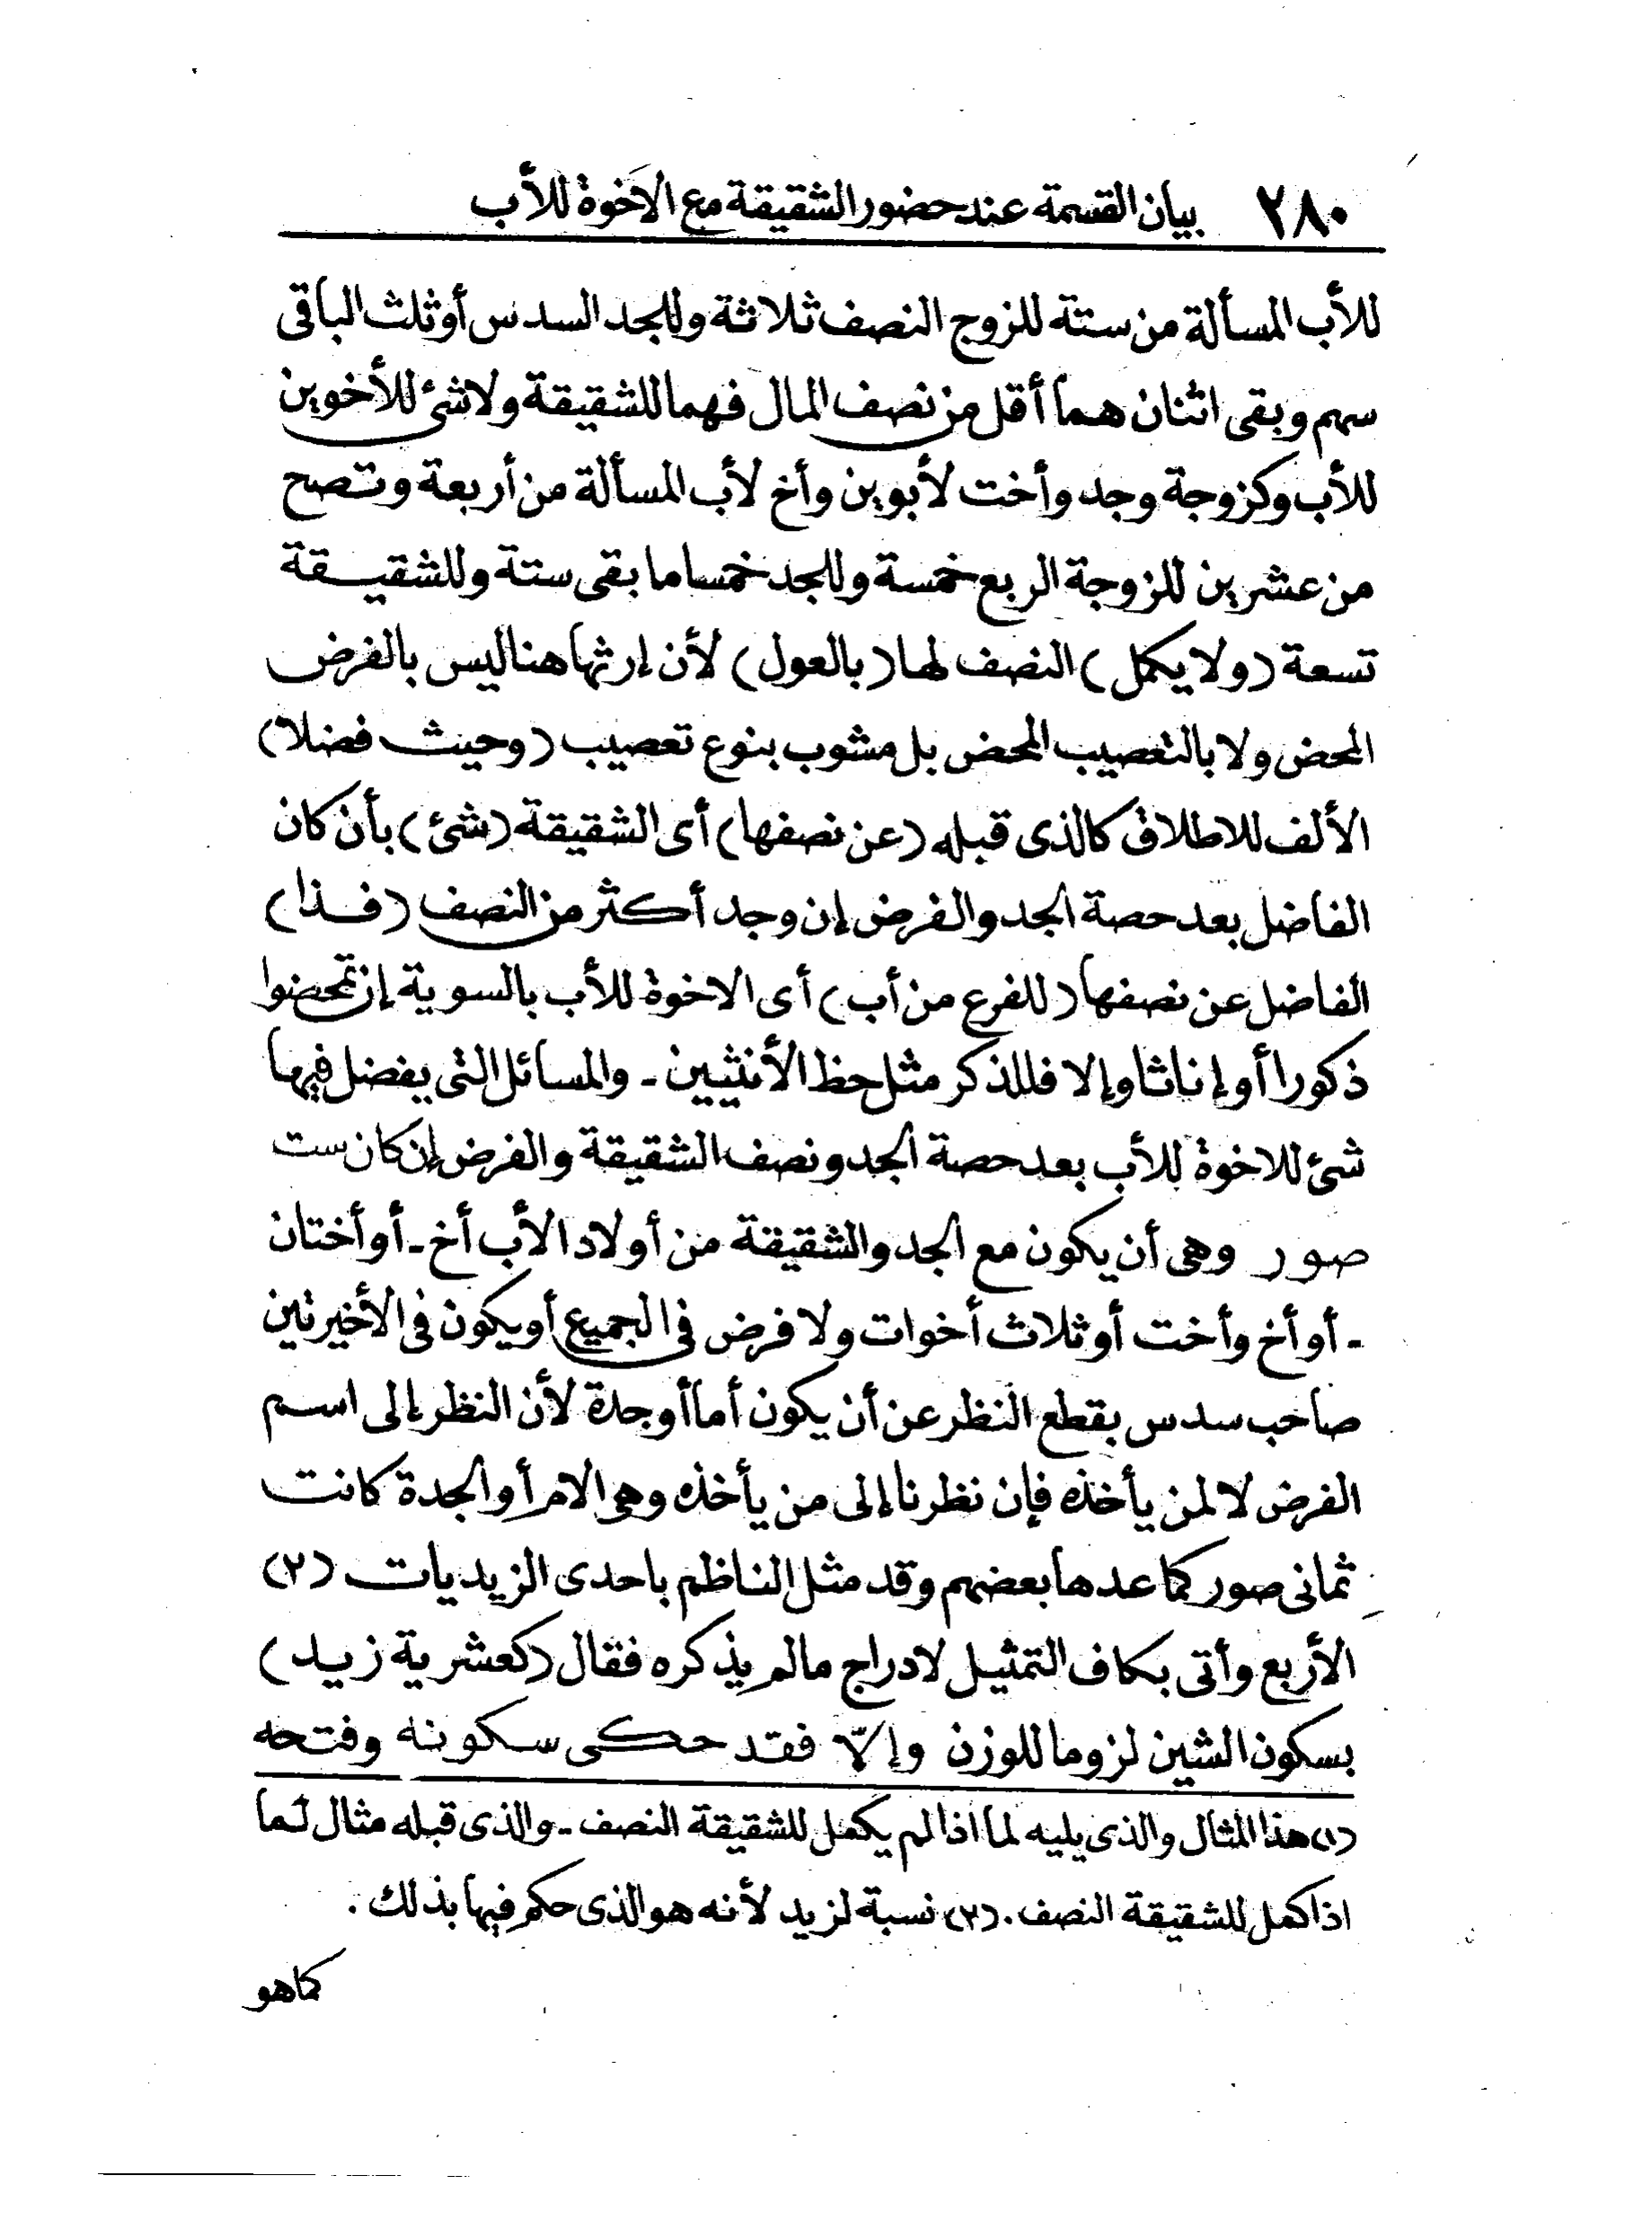 ٢٨٠ بيان القسمة عند حضور الشقيقة مع الاخوة للأب
للأب المسألة من ستة للزوج النصف ثلاثة وللجد السدس أو ثلث الباقى
سهم وبقى اثنان هما أقل من نصف المال فهما للشقيقة ولا شئ للأخوين
للأب وكزوجة وجد وأخت لأبوين وأخ لأب المسألة من أربعة وتصح
من عشرين للزوجة الربع خمسة وللجد خمسا ما بقى ستة وللشقيقة
تسعة (ولا يكمل) النصف لها (بالعول) لأن إرثها هنا ليس بالفرض
المحض ولا بالتعصيب المحض بل مشوب بنوع تعصيب (وحيث فضلا)
الألف للاطلاق كالذى قبله (عن نصفها) أى الشقيقة (شئ) بأن كان
الفاضل بعد حصة الجد والفرض إن وجد أكثر من النصف (فذا)
الفاضل عن نصفها (للفرع من أب) أى الاخوة للأب بالسوية إن تمحضوا
ذكورا أو إناثا وإلا فللذكر مثل حظ الأنثيين - والمسائل التى يفضل فيها
شئ للاخوة للأب بعد حصة الجد ونصف الشقيقة والفرض إن كان ست
صور وهى أن يكون مع الجد والشقيقة من أولاد الأب أخ - أو أختان
- أو أخ وأخت أو ثلاث أخوات ولا فرض فى الجميع أو يكون فى الأخيرتين
صاحب سدس بقطع النظر عن أن يكون أما أو جدة لأن النظر إلى اسم
الفرض لا لمن يأخذه فإن نظرنا إلى من يأخذه وهى الام أو الجدة كانت
ثمانى صور كما عدها بعضهم وقد مثل الناظم باحدى الزيديات (٢)
الأربع وأتى بكاف التمثيل لادراج مالم يذكره فقال (كعشرية زيد)
بسكون الشين لزوما للوزن وإلّا فقد حكى سكونه وفتحه
(١) هذا المثال والذى يليه لما اذا لم يكمل للشقيقة النصف - والذى قبله مثال لما
اذا كمل للشقيقة النصف . (٢) نسبة لزيد لأنه هو الذى حكم فيها بذلك .
كما هو